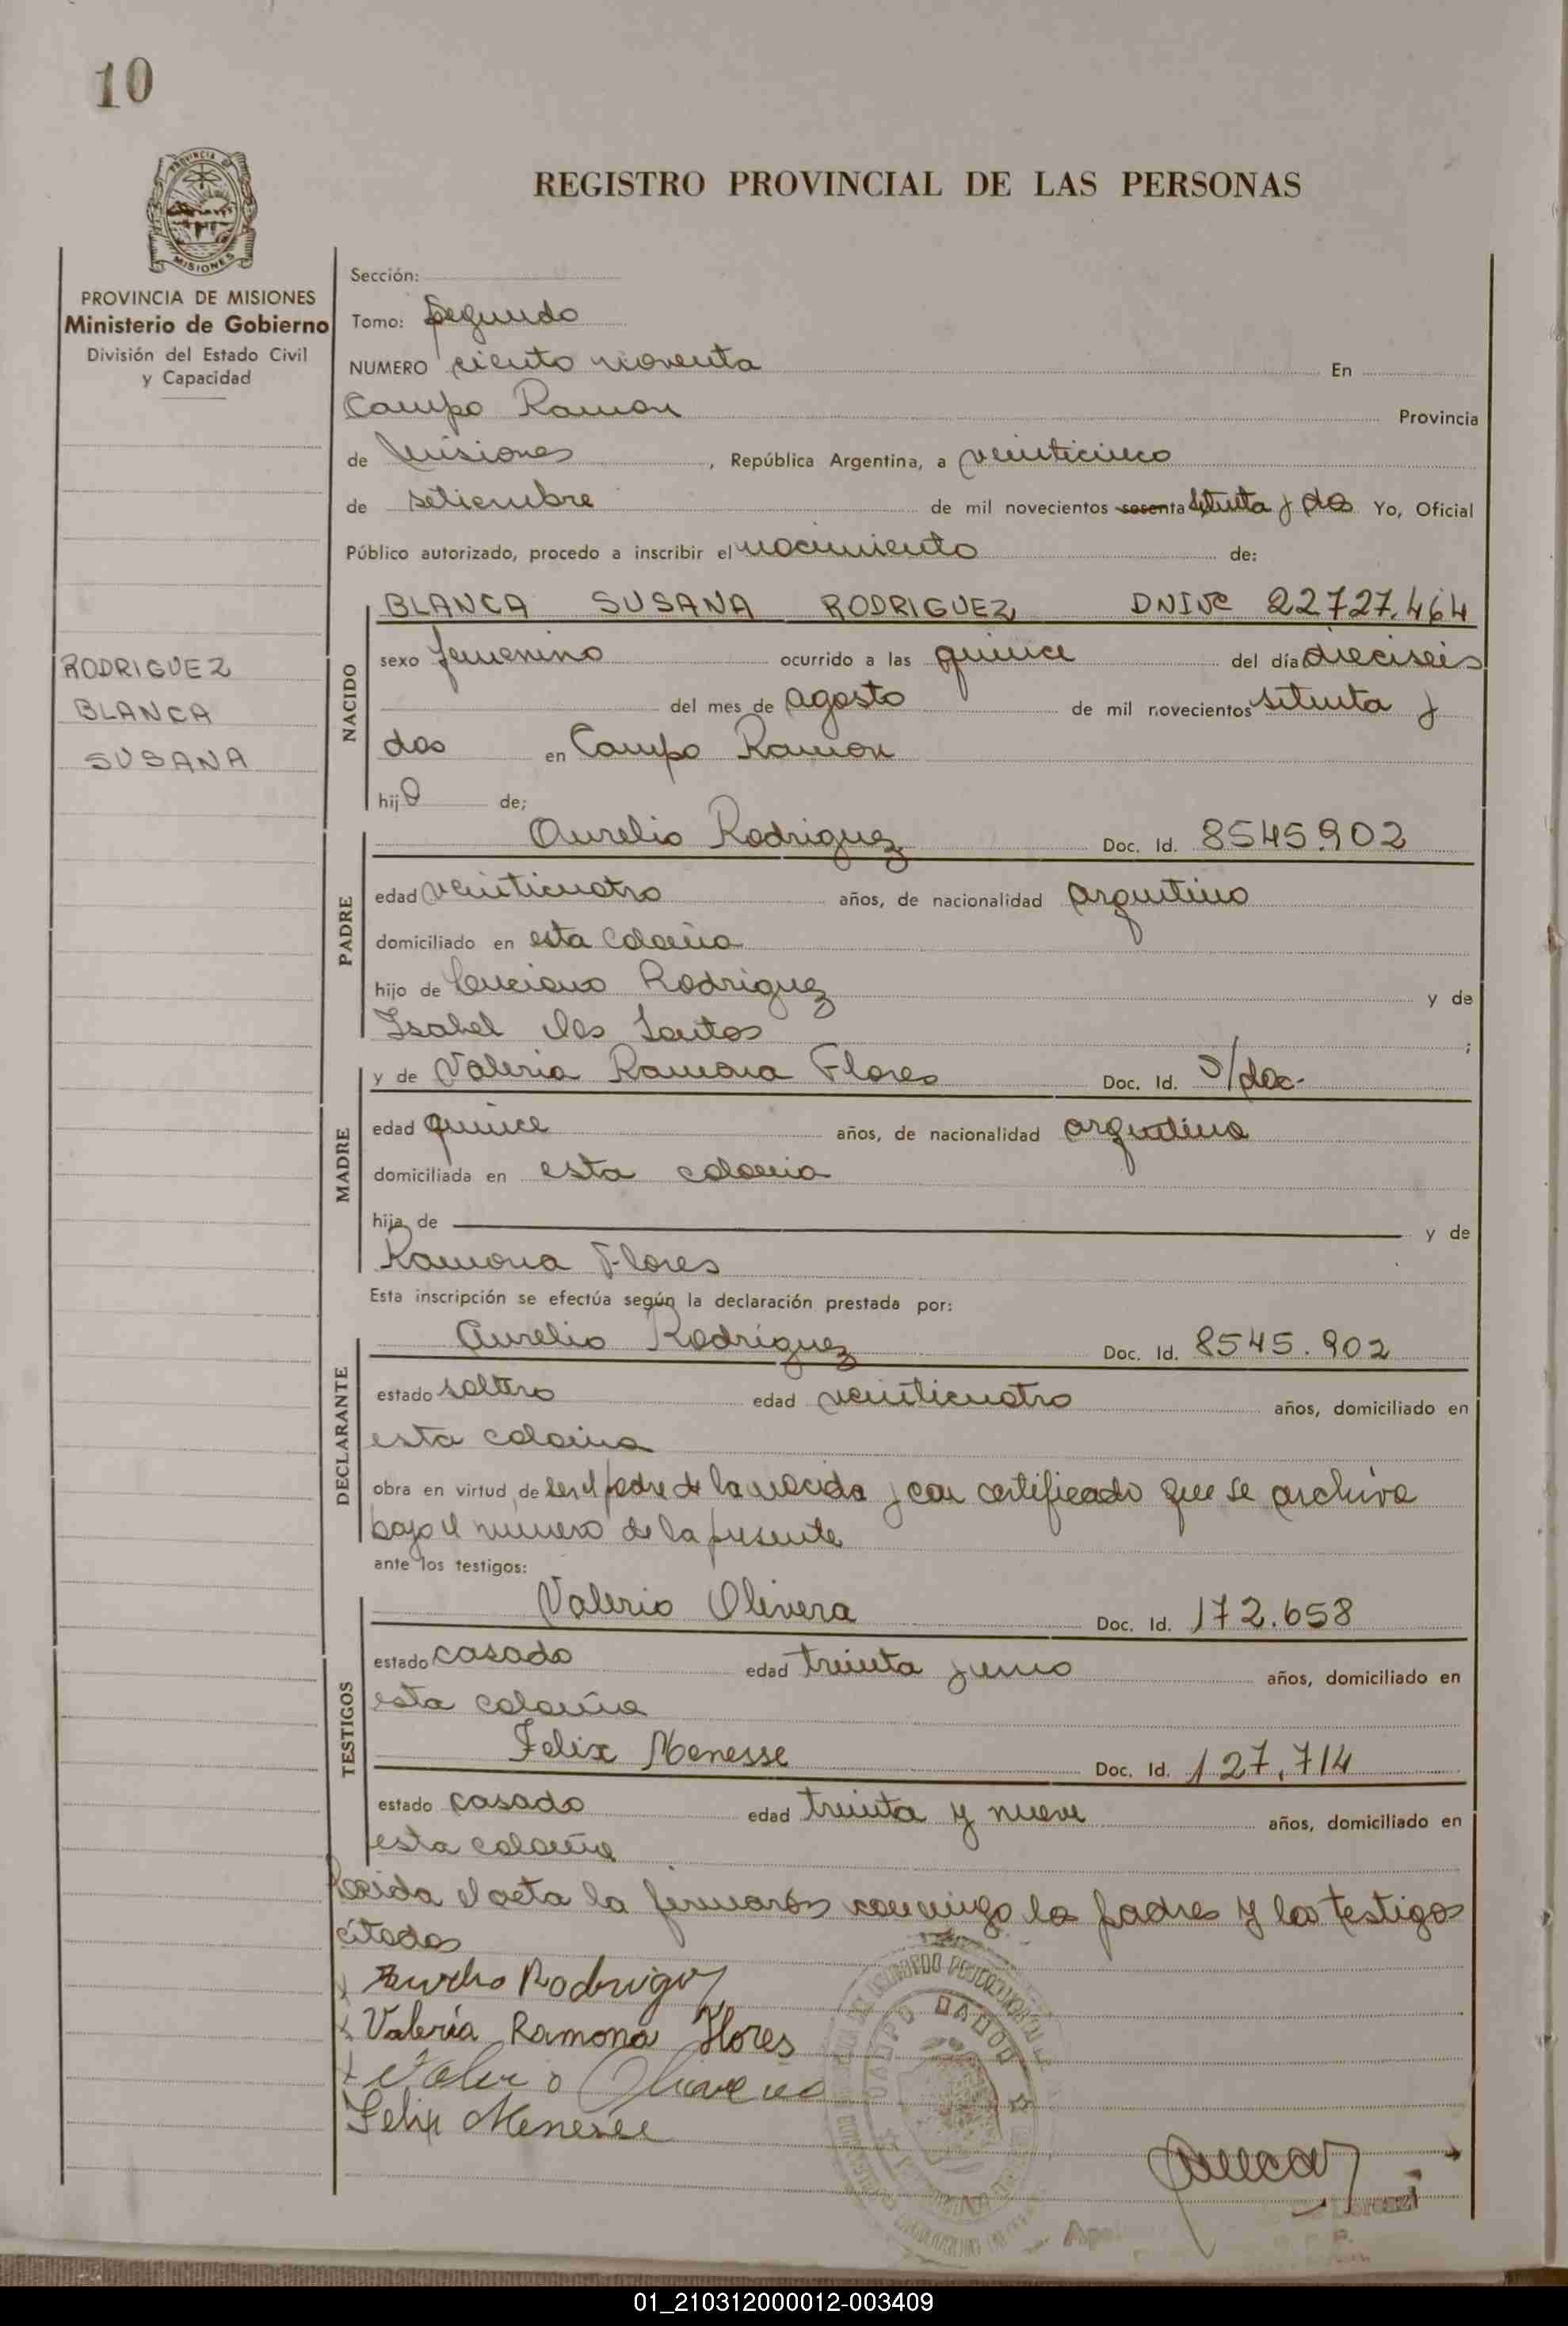 10
PROVINCIA DE
MISIONES
REGISTRO PROVINCIAL DE LAS PERSONAS
PROVINCIA DE MISIONES
Ministerio de Gobierno
División del Estado Civil
y Capacidad
RODRIGUEZ
BLANCA
SUSANA
Sección:
Tomo: Segundo
NUMERO ciento noventa En
Campo Ramon Provincia
de Misiones, República Argentina, a veinticinco
de setiembre de mil novecientos sesenta setenta y dos Yo, Oficial
Público autorizado, procedo a inscribir el nacimiento de:
NACIDO
BLANCA SUSANA RODRIGUEZ DNI Nº 22727.464
sexo femenino ocurrido a las quince del día dieciseis
del mes de agosto de mil novecientos setenta y
dos en Campo Ramon
hija de;
PADRE
Aurelio Rodriguez Doc. Id. 8545.902
edad veinticuatro años, de nacionalidad argentino
domiciliado en esta colonia
hijo de Luciano Rodriguez y de
Isabel Dos Santos ;
MADRE
y de Valeria Ramona Flores Doc. Id. S/doc.
edad quince años, de nacionalidad argentina
domiciliada en esta colonia
hija de y de
Ramona Flores
Esta inscripción se efectúa según la declaración prestada por:
DECLARANTE
Aurelio Rodríguez Doc. Id. 8545.902
estado soltero edad veinticuatro años, domiciliado en
esta colonia
obra en virtud de ser el padre de la nacida y con certificado que se archiva
bajo el numero de la presente
ante los testigos:
TESTIGOS
Valerio Olivera Doc. Id. 172.658
estado casado edad treinta y uno años, domiciliado en
esta colonia
Felix Menesse Doc. Id. 127.714
estado casado edad treinta y nueve años, domiciliado en
esta colonia
Leida el acta la firmarón conmigo los padres y los testigos
citados
Aurelio Rodriguez
Valería Ramona Flores
Valerio Olivera
Felix Menesse
CAMPO RAMON
01_210312000012-003409